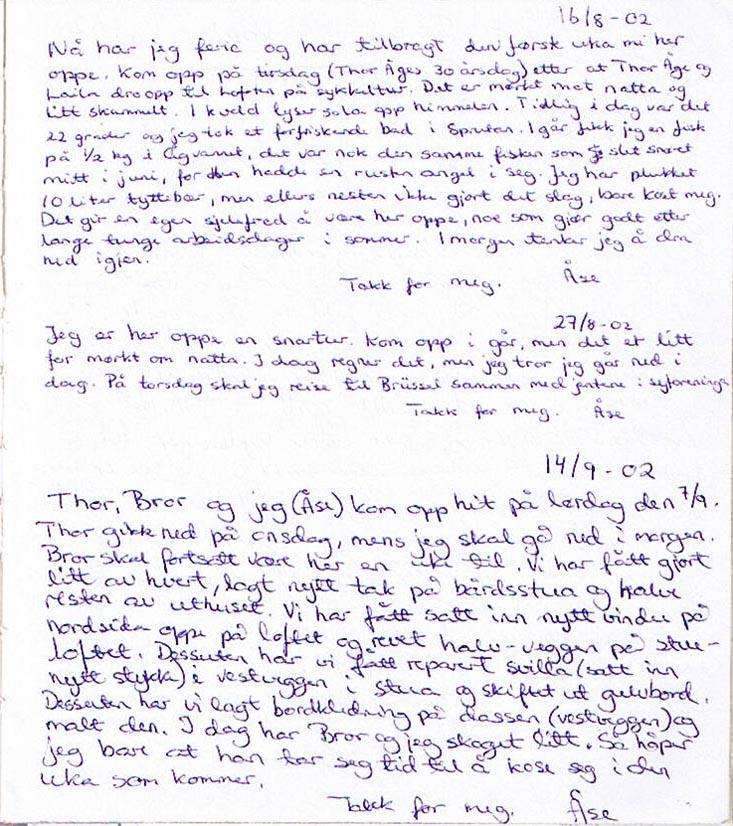 16/8-02
Nå har jeg ferie og har tilbragt den første uka mi her
oppe. Kom opp på tirsdag (Thor Åges 30 årsdag) etter at Thor Åge og
Laila dro opp til hoften på sykkeltur. Det er mørkt mot natta og
litt skummelt. I kveld lyser sola opp himmelen. Tidlig i dag var det
22 grader og jeg tok et forfriskende bad i Spruten. I går fikk jeg en fisk
på 1/2 kg i , det var nok den samme fisken som slet snøret
mitt i juni, for den hadde en rusten angel i seg. Jeg har plukket
10 liter tyttebær, men ellers nesten ikke gjort det slag, bare kost meg.
Det gir en egen sjelefred å være her oppe, noe som gjør godt etter
lange tunge arbeidsdager i sommer. I morgen tenker jeg å dra
ned igjen.
Takk for meg. Åse
27/8-02
Jeg er her oppe en snartur. Kom opp i går, men det er litt
for mørkt om natta. I dag regner det, men jeg tror jeg går ned i
dag. På torsdag skal jeg reise til Brüssel sammen med jentene i syforeninga
Takk for meg. Åse
14/9-02
Thor, Bror og jeg (Åse) kom opp hit på lørdag den 7/9.
Thor gikk ned på onsdag, mens jeg skal gå ned i morgen.
Bror skal fortsatt være her en uke til. Vi har fått gjort
litt av hvert, lagt nytt tak på bårdsstua og halve
resten av uthuset. Vi har fått satt inn nytt vindu på
nordsida oppe på loftet og revet halv-veggen på stue-
loftet. Dessuten har vi fått reparert svilla (satt inn
nytt stykke) i vestveggen i stua og skiftet ut gulvbord.
Dessuten har vi lagt bordkledning på dassen (vestveggen) og
malt den. I dag har Bror og jeg skoget litt. Så håper
jeg bare at han tar seg tid til å kose seg i den
uka som kommer.
Takk for meg. Åse